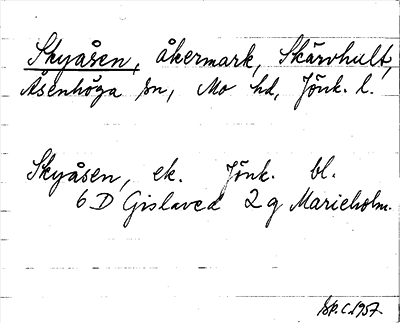 Skyåsen, åkermark, Skärvhult,
Åsenhöga sn, Mo hd, Jönk. l.
Skyåsen, ek. Jönk. bl.
6 D Gislaved 2 g Marieholm.
Sp.C.1957